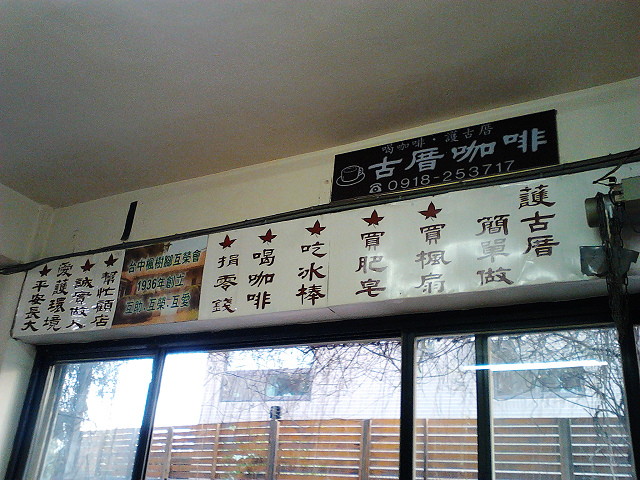 喝咖啡．護古厝
古厝咖啡
☎0918-253717
護古厝
簡單做
★買楓扇
★買肥皂
★吃冰棒
★喝咖啡
★捐零錢
台中楓樹腳互榮會
1936年創立
互助.互榮.互愛
★幫忙顧店
★誠實做人
愛護環境
★平安長大